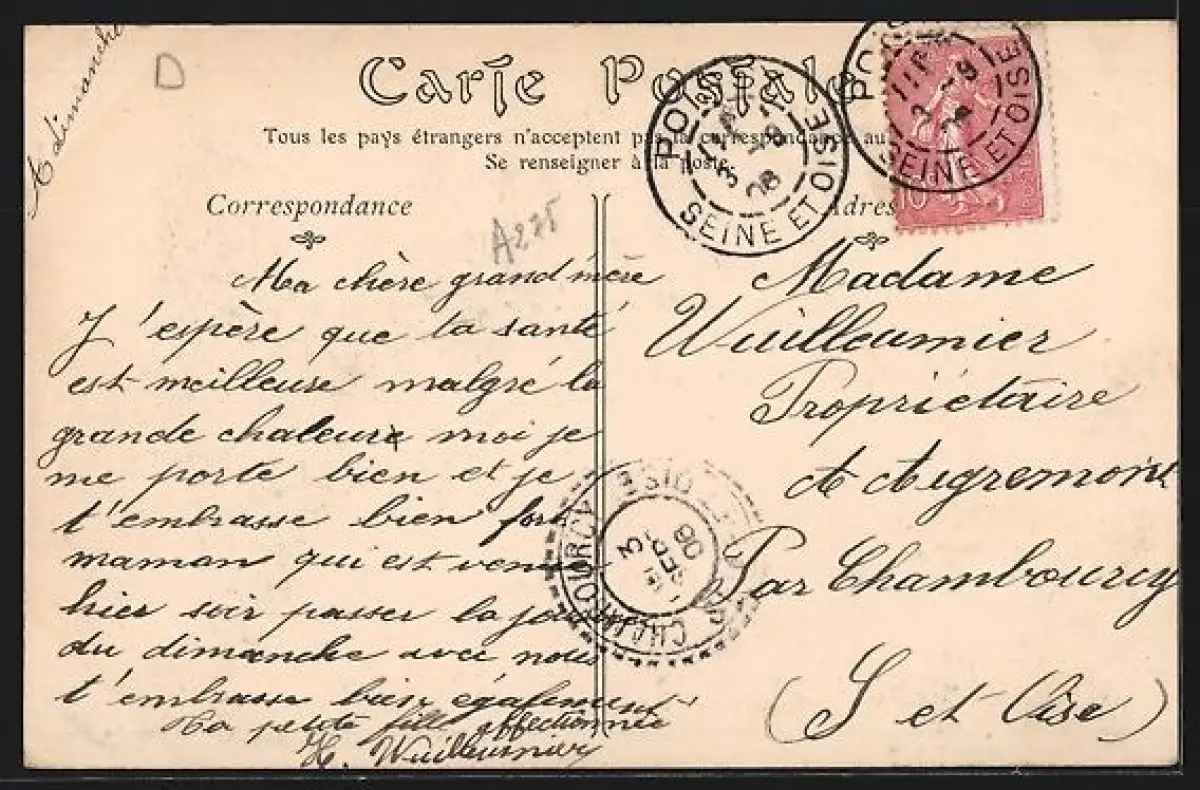 A dimanche
D
Carte Postale
Tous les pays étrangers n'acceptent pas la correspondance au
Se renseigner à la poste.
Correspondance
A275
Adres
POIS
SEINE ET OISE
POIS
SEINE ET OISE
10
Ma chère grand'mère
J'espère que ta santé
est meilleure malgré la
grande chaleur moi je
me porte bien et je
t'embrasse bien fort
maman qui est venue
hier soir passer la journée
du dimanche avec nous
t'embrasse bien également
Ta petite fille affectionnée
H. Wuilleumier
Madame
Wuilleumier
Propriétaire
A Aigremont
Par Chambourcy
(S et Oise)
CHAMBOURCY
OISE
3
SEPT
06